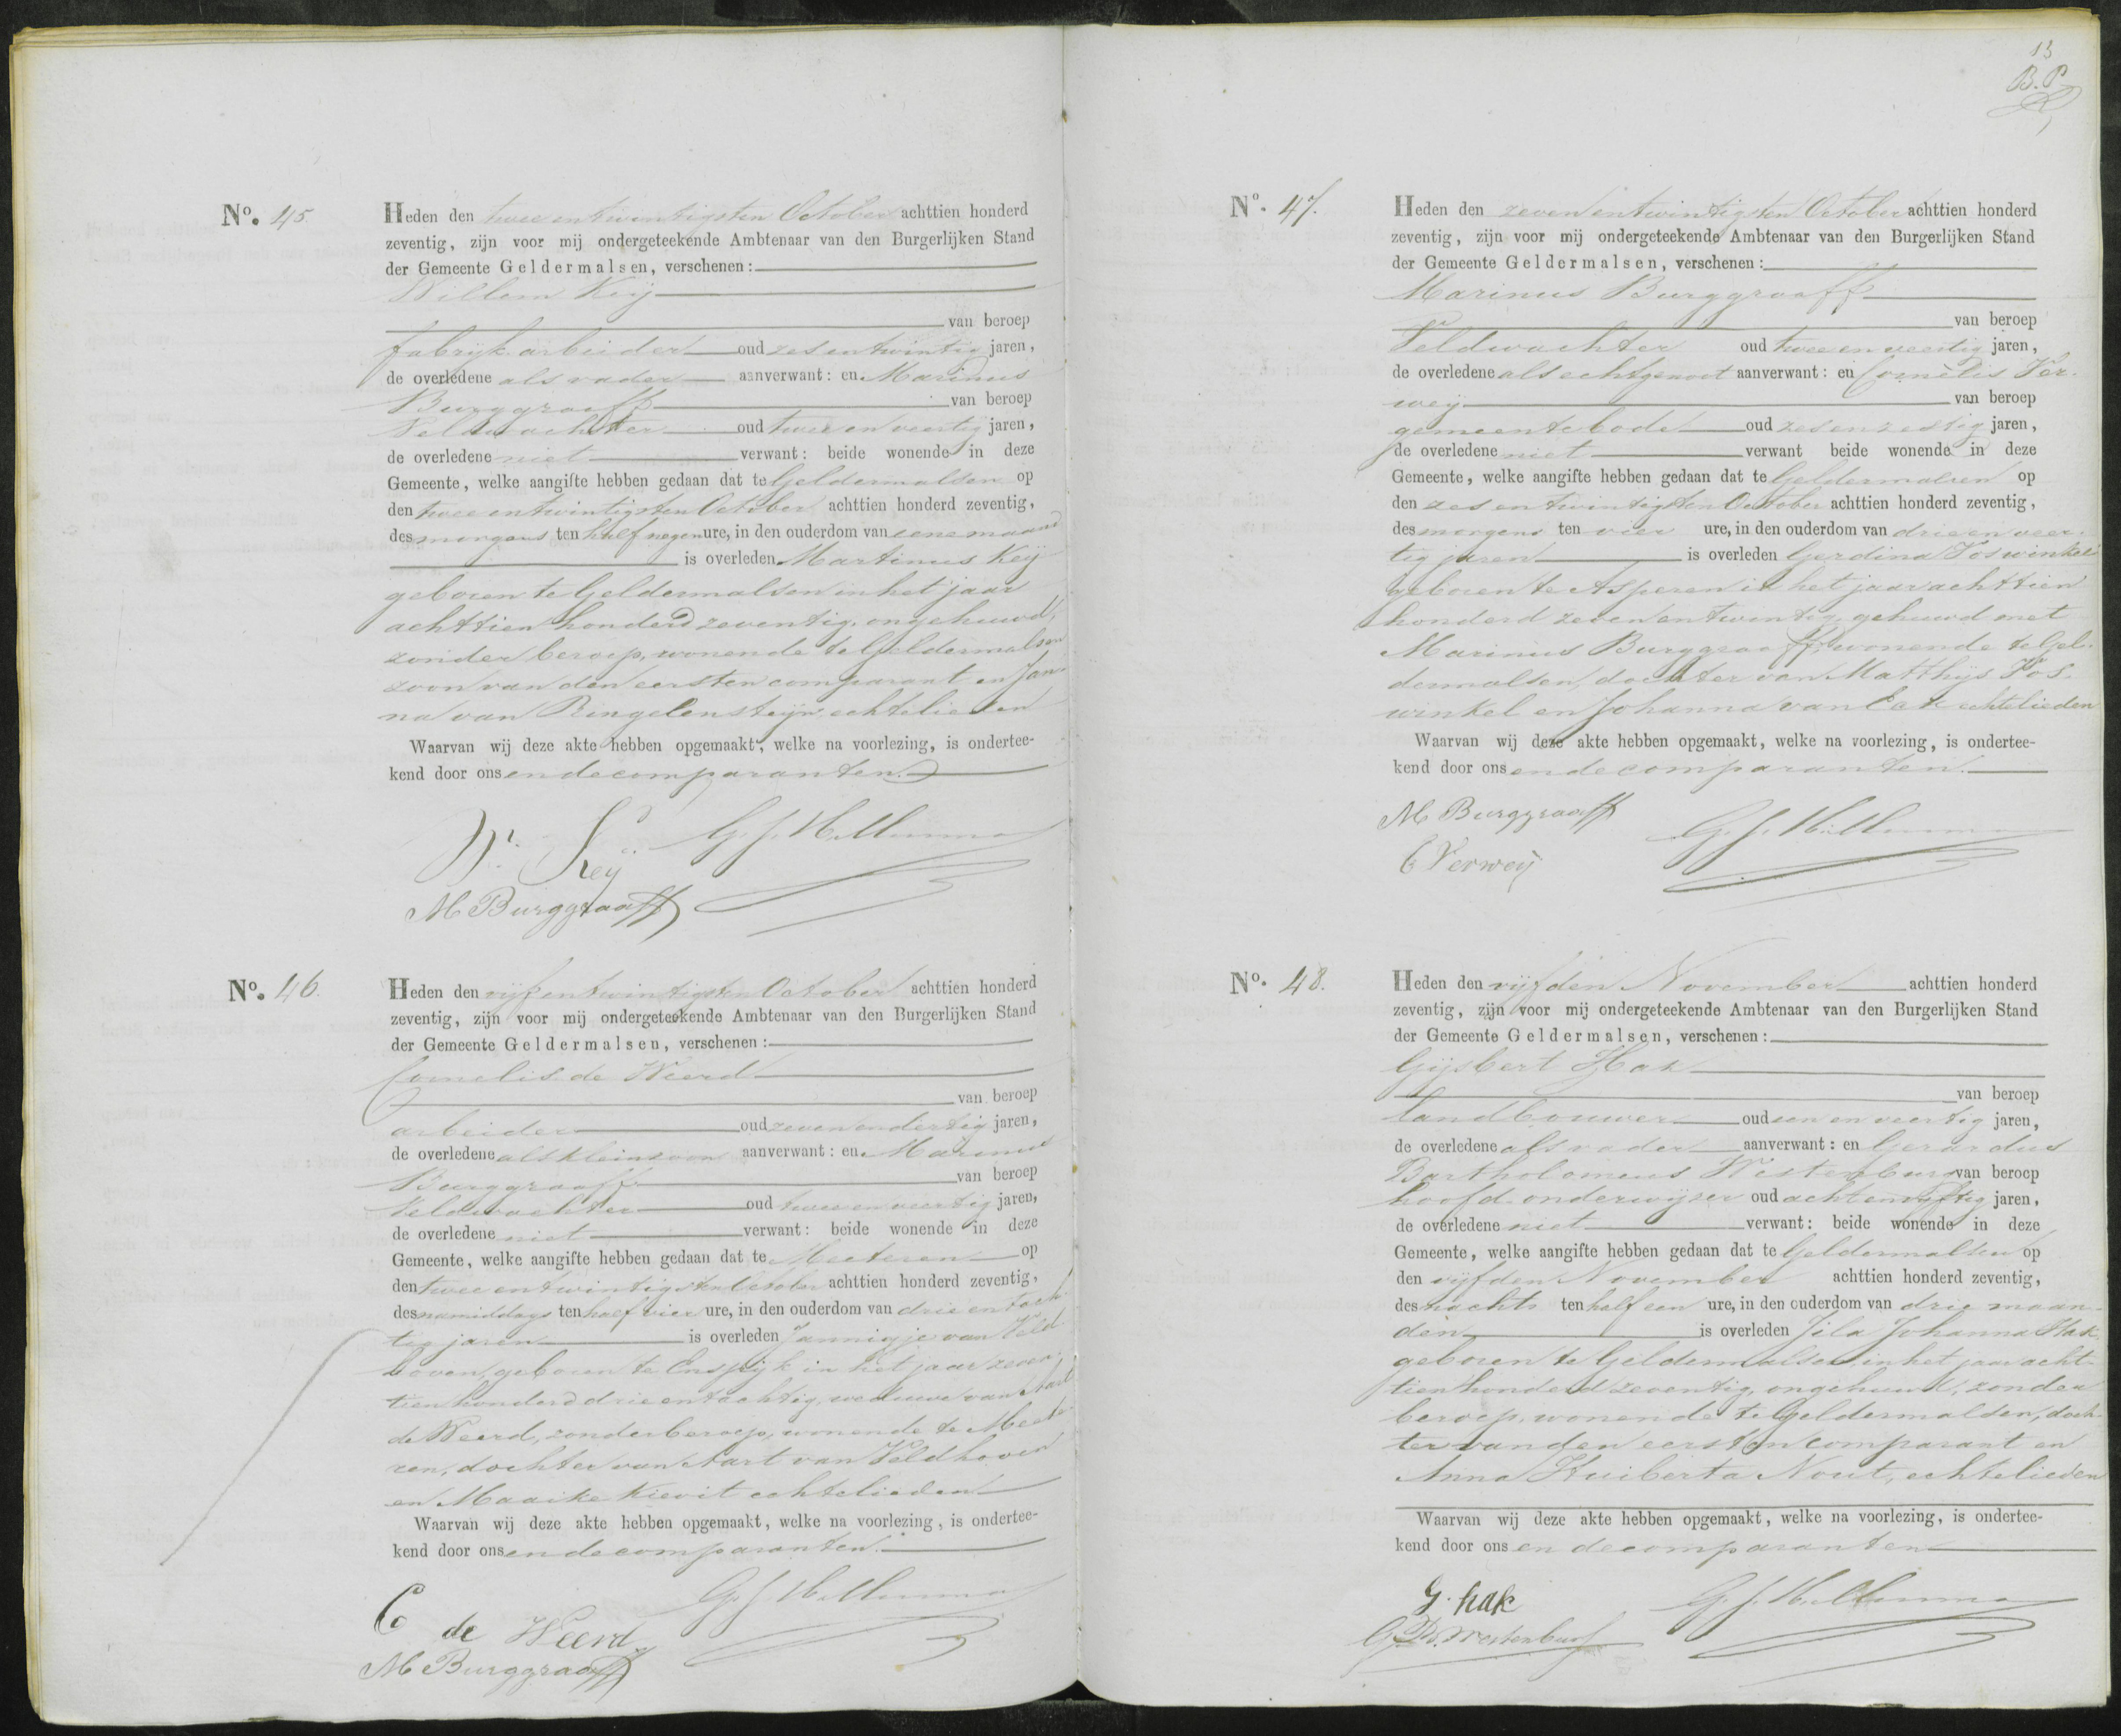 13
B. P.
No. 45
Heden den twee en twintigsten October achttien honderd
zeventig, zijn voor mij ondergeteekende Ambtenaar van den Burgerlijken Stand
der Gemeente Geldermalsen, verschenen:
Willem Keij
van beroep
fabrijk arbeider oud zes en twintig jaren,
de overledene als vader aanverwant: en Marinus
Burggraaff van beroep
Veldwachter oud twee en veertig jaren,
de overledene niet verwant: beide wonende in deze
Gemeente, welke aangifte hebben gedaan dat te Geldermalsen op
den twee en twintigsten October achttien honderd zeventig,
des morgens ten half negen ure, in den ouderdom van eene maand
is overleden Martinus Keij
geboren te Geldermalsen in het jaar
achttien honderd zeventig, ongehuwd,
zonder beroep, wonende te Geldermalsen
zoon van den eersten comparant en Jan-
na van Ringelensteijn echtelieden
Waarvan wij deze akte hebben opgemaakt, welke na voorlezing, is ondertee-
kend door ons en de comparanten.
W. Keij
M Burggraaff
No. 46.
Heden den vijf en twintigsten October achttien honderd
zeventig, zijn voor mij ondergeteekende Ambtenaar van den Burgerlijken Stand
der Gemeente Geldermalsen, verschenen:
Cornelis de Weerd
van beroep
arbeider oud zeven en dertig jaren,
de overledene als kleinzoon aanverwant: en Marinus
Burggraaff van beroep
Veldwachter oud twee en veertig jaren,
de overledene niet verwant: beide wonende in deze
Gemeente, welke aangifte hebben gedaan dat te Meeteren op
den twee en twintigsten October achttien honderd zeventig,
des namiddags ten half vier ure, in den ouderdom van drie en tach-
tig jaren is overleden Jannigje van Veld-
hoven, geboren te Enspijk in het jaar zeven-
tien honderd drie en tachtig, weduwe van Aart
de Weerd, zonder beroep, wonende te Meete-
ren, dochter van Aart van Veldhoven
en Maaike Kievit echtelieden
Waarvan wij deze akte hebben opgemaakt, welke na voorlezing, is ondertee-
kend door ons en de comparanten.
C de Weerd
M Burggraaff
No. 47.
Heden den zeven en twintigsten October achttien honderd
zeventig, zijn voor mij ondergeteekende Ambtenaar van den Burgerlijken Stand
der Gemeente Geldermalsen, verschenen:
Marinus Burggraaff
van beroep
Veldwachter oud twee en veertig jaren,
de overledene als echtgenoot aanverwant: en Cornelis Ver-
weij van beroep
gemeentebode oud zes en zestig jaren,
de overledene niet verwant beide wonende in deze
Gemeente, welke aangifte hebben gedaan dat te Geldermalsen op
den zes en twintigsten October achttien honderd zeventig,
des morgens ten vier ure, in den ouderdom van drie en veer-
tig jaren is overleden Gerdina Voswinkel
geboren te Asperen in het jaar achttien
honderd zeven en twintig, gehuwd met
Marinus Burggraaff, wonende te Gel-
dermalsen, dochter van Matthijs Vos-
winkel en Johanna van Eck echtelieden
Waarvan wij deze akte hebben opgemaakt, welke na voorlezing, is ondertee-
kend door ons en de comparanten.
M Burggraaff
C Verweij
No. 48.
Heden den vijfden November achttien honderd
zeventig, zijn voor mij ondergeteekende Ambtenaar van den Burgerlijken Stand
der Gemeente Geldermalsen, verschenen:
Gijsbert Hak
van beroep
landbouwer oud een en veertig jaren,
de overledene als vader aanverwant: en Gerardus
Bartholomeus Westenburg van beroep
hoofd-onderwijzer oud acht en vijftig jaren,
de overledene niet verwant: beide wonende in deze
Gemeente, welke aangifte hebben gedaan dat te Geldermalsen op
den vijfden November achttien honderd zeventig,
des nachts ten half een ure, in den ouderdom van drie maan-
den is overleden Jila Johanna Hak
geboren te Geldermalsen, in het jaar acht-
tien honderd zeventig, ongehuwd, zonder
beroep, wonende te Geldermalsen, doch-
ter van den eersten comparant en
Anna Huiberta Nout, echtelieden
Waarvan wij deze akte hebben opgemaakt, welke na voorlezing, is ondertee-
kend door ons en de comparanten
G. hak
G. B. Westenburg